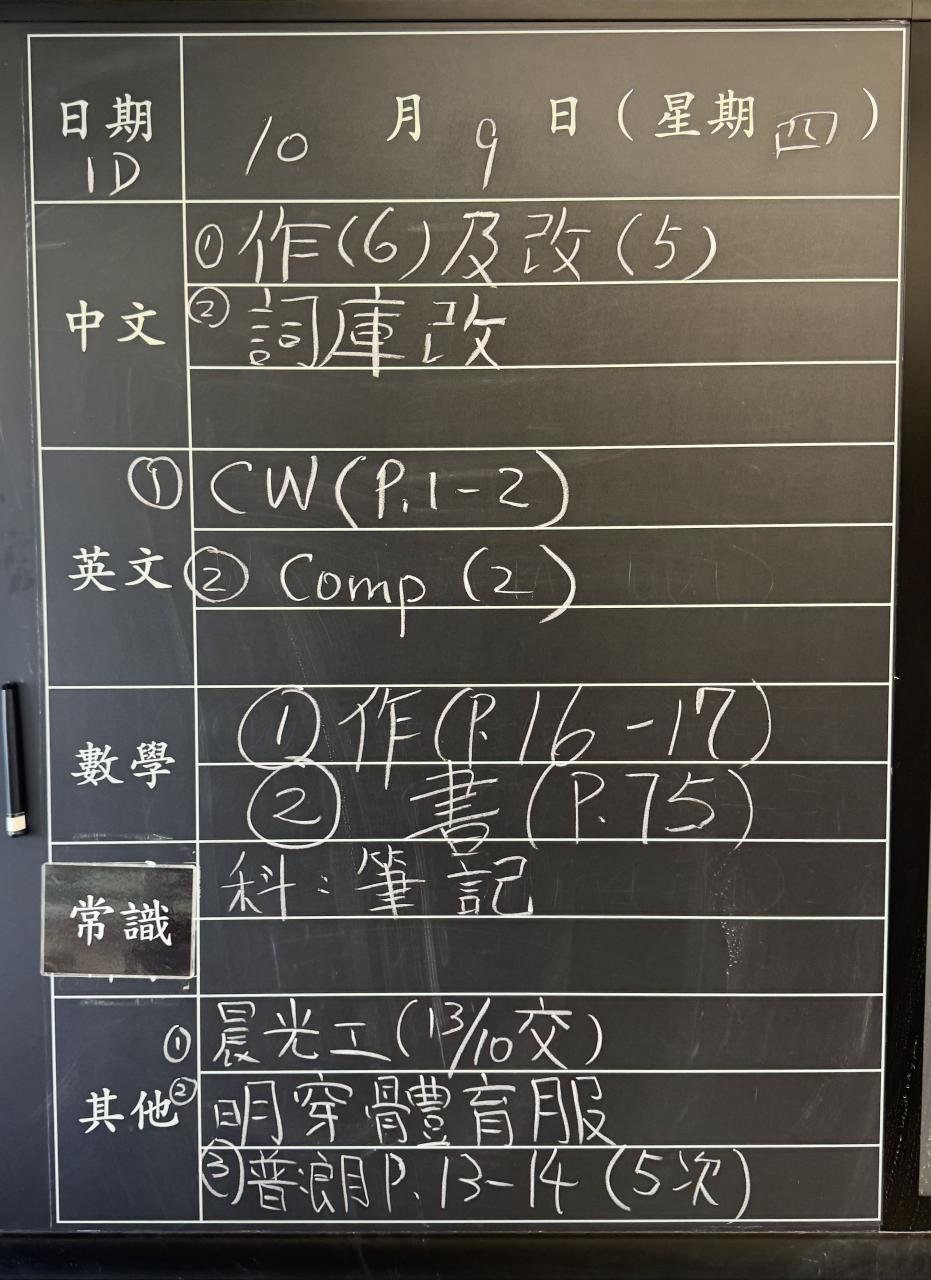 日期 10月9日(星期四)
1D
中文
①作(6)及改(5)
②詞庫改
英文
①CW(P.1-2)
②Comp(2)
數學
①作(P.16-17)
②書(P.75)
常識
科:筆記
其他
①晨光工(13/10交)
②明穿體育服
③普浪月P.13-14(5次)